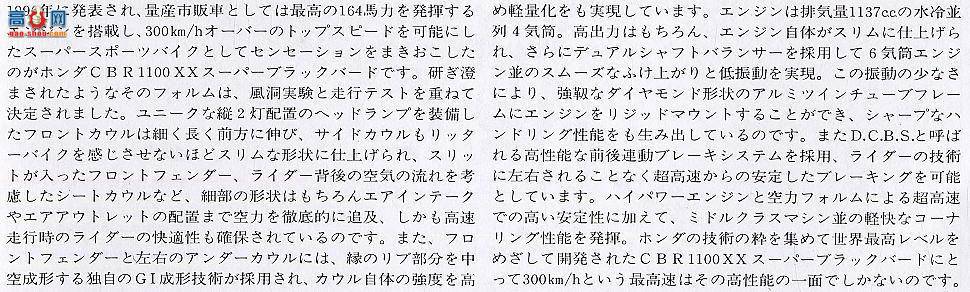 1996年に発表され、量産市販車としては最高の164馬力を発揮する
を搭載し、300km/hオーバーのトップスピードを可能にし
たスーパースポーツバイクとしてセンセーションをまきおこした
のがホンダCBR1100XXスーパーブラックバードです。研ぎ澄
まされたようなそのフォルムは、風洞実験と走行テストを重ねて
決定されました。ユニークな縦2灯配置のヘッドランプを装備し
たフロントカウルは細く長く前方に伸び、サイドカウルもリッタ
ーバイクを感じさせないほどスリムな形状に仕上げられ、スリッ
トが入ったフロントフェンダー、ライダー背後の空気の流れを考
慮したシートカウルなど、細部の形状はもちろんエアインテーク
やエアアウトレットの配置まで空力を徹底的に追及、しかも高速
走行時のライダーの快適性も確保されているのです。また、フロ
ントフェンダーと左右のアンダーカウルには、縁のリブ部分を中
空成形する独自のGI成形技術が採用され、カウル自体の強度を高
め軽量化をも実現しています。エンジンは排気量1137c.c.の水冷並
列4気筒。高出力はもちろん、エンジン自体がスリムに仕上げら
れ、さらにデュアルシャフトバランサーを採用して6気筒エンジ
ン並のスムーズなふけ上がりと低振動を実現。この振動の少なさ
により、強靱なダイヤモンド形状のアルミツインチューブフレー
ムにエンジンをリジッドマウントすることができ、シャープなハ
ンドリング性能をも生み出しているのです。またD.C.B.S.と呼ば
れる高性能な前後連動ブレーキシステムを採用、ライダーの技術
に左右されることなく超高速からの安定したブレーキングを可能
としています。ハイパワーエンジンと空力フォルムによる超高速
での高い安定性に加えて、ミドルクラスマシン並の軽快なコーナ
リング性能を発揮。ホンダの技術の粋を集めて世界最高レベルを
めざして開発されたCBR1100XXスーパーブラックバードにと
って300km/hという最高速はその高性能の一面でしかないのです。